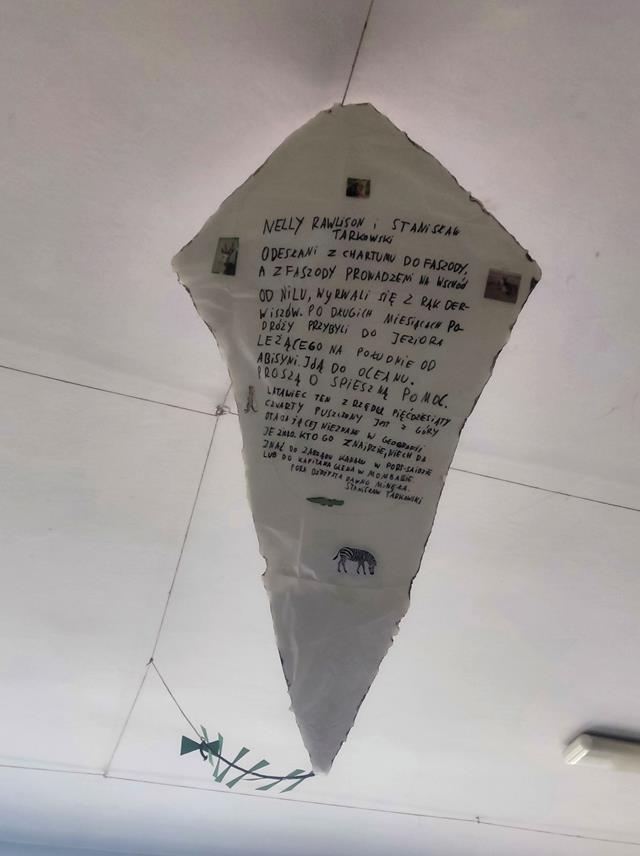 NELLY RAWLISON i STANISŁAW
TARKOWSKI
ODESŁANI Z CHARTUMU DO FASZODY,
A Z FASZODY PROWADZENI NA WSCHÓD
OD NILU, WYRWALI SIĘ Z RĄK DER-
WISZÓW. PO DŁUGICH MIESIĄCACH PO-
DRÓŻY PRZYBYLI DO JEZIORA
LEŻĄCEGO NA POŁUDNIE OD
ABISYNI. IDĄ DO OCEANU.
PROSZĄ O SPIESZNĄ POMOC.
LATAWIEC TEN Z RZĘDU PIĘĆDZIESIĄTY
CZWARTY PUSZCZONY JEST Z GÓRY
OTACZAJĄCEJ NIEZNANE W GEOGRAFII
JEZIORO. KTO GO ZNAJDZIE, NIECH DA
ZNAĆ DO ZARZĄDU KANAŁU W PORT-SAIDZIE
LUB DO KAPITANA GLENA W MOMBASIE.
PORA DŻDŻYSTA DAWNO MINĘŁA.
STANISŁAW TARKOWSKI